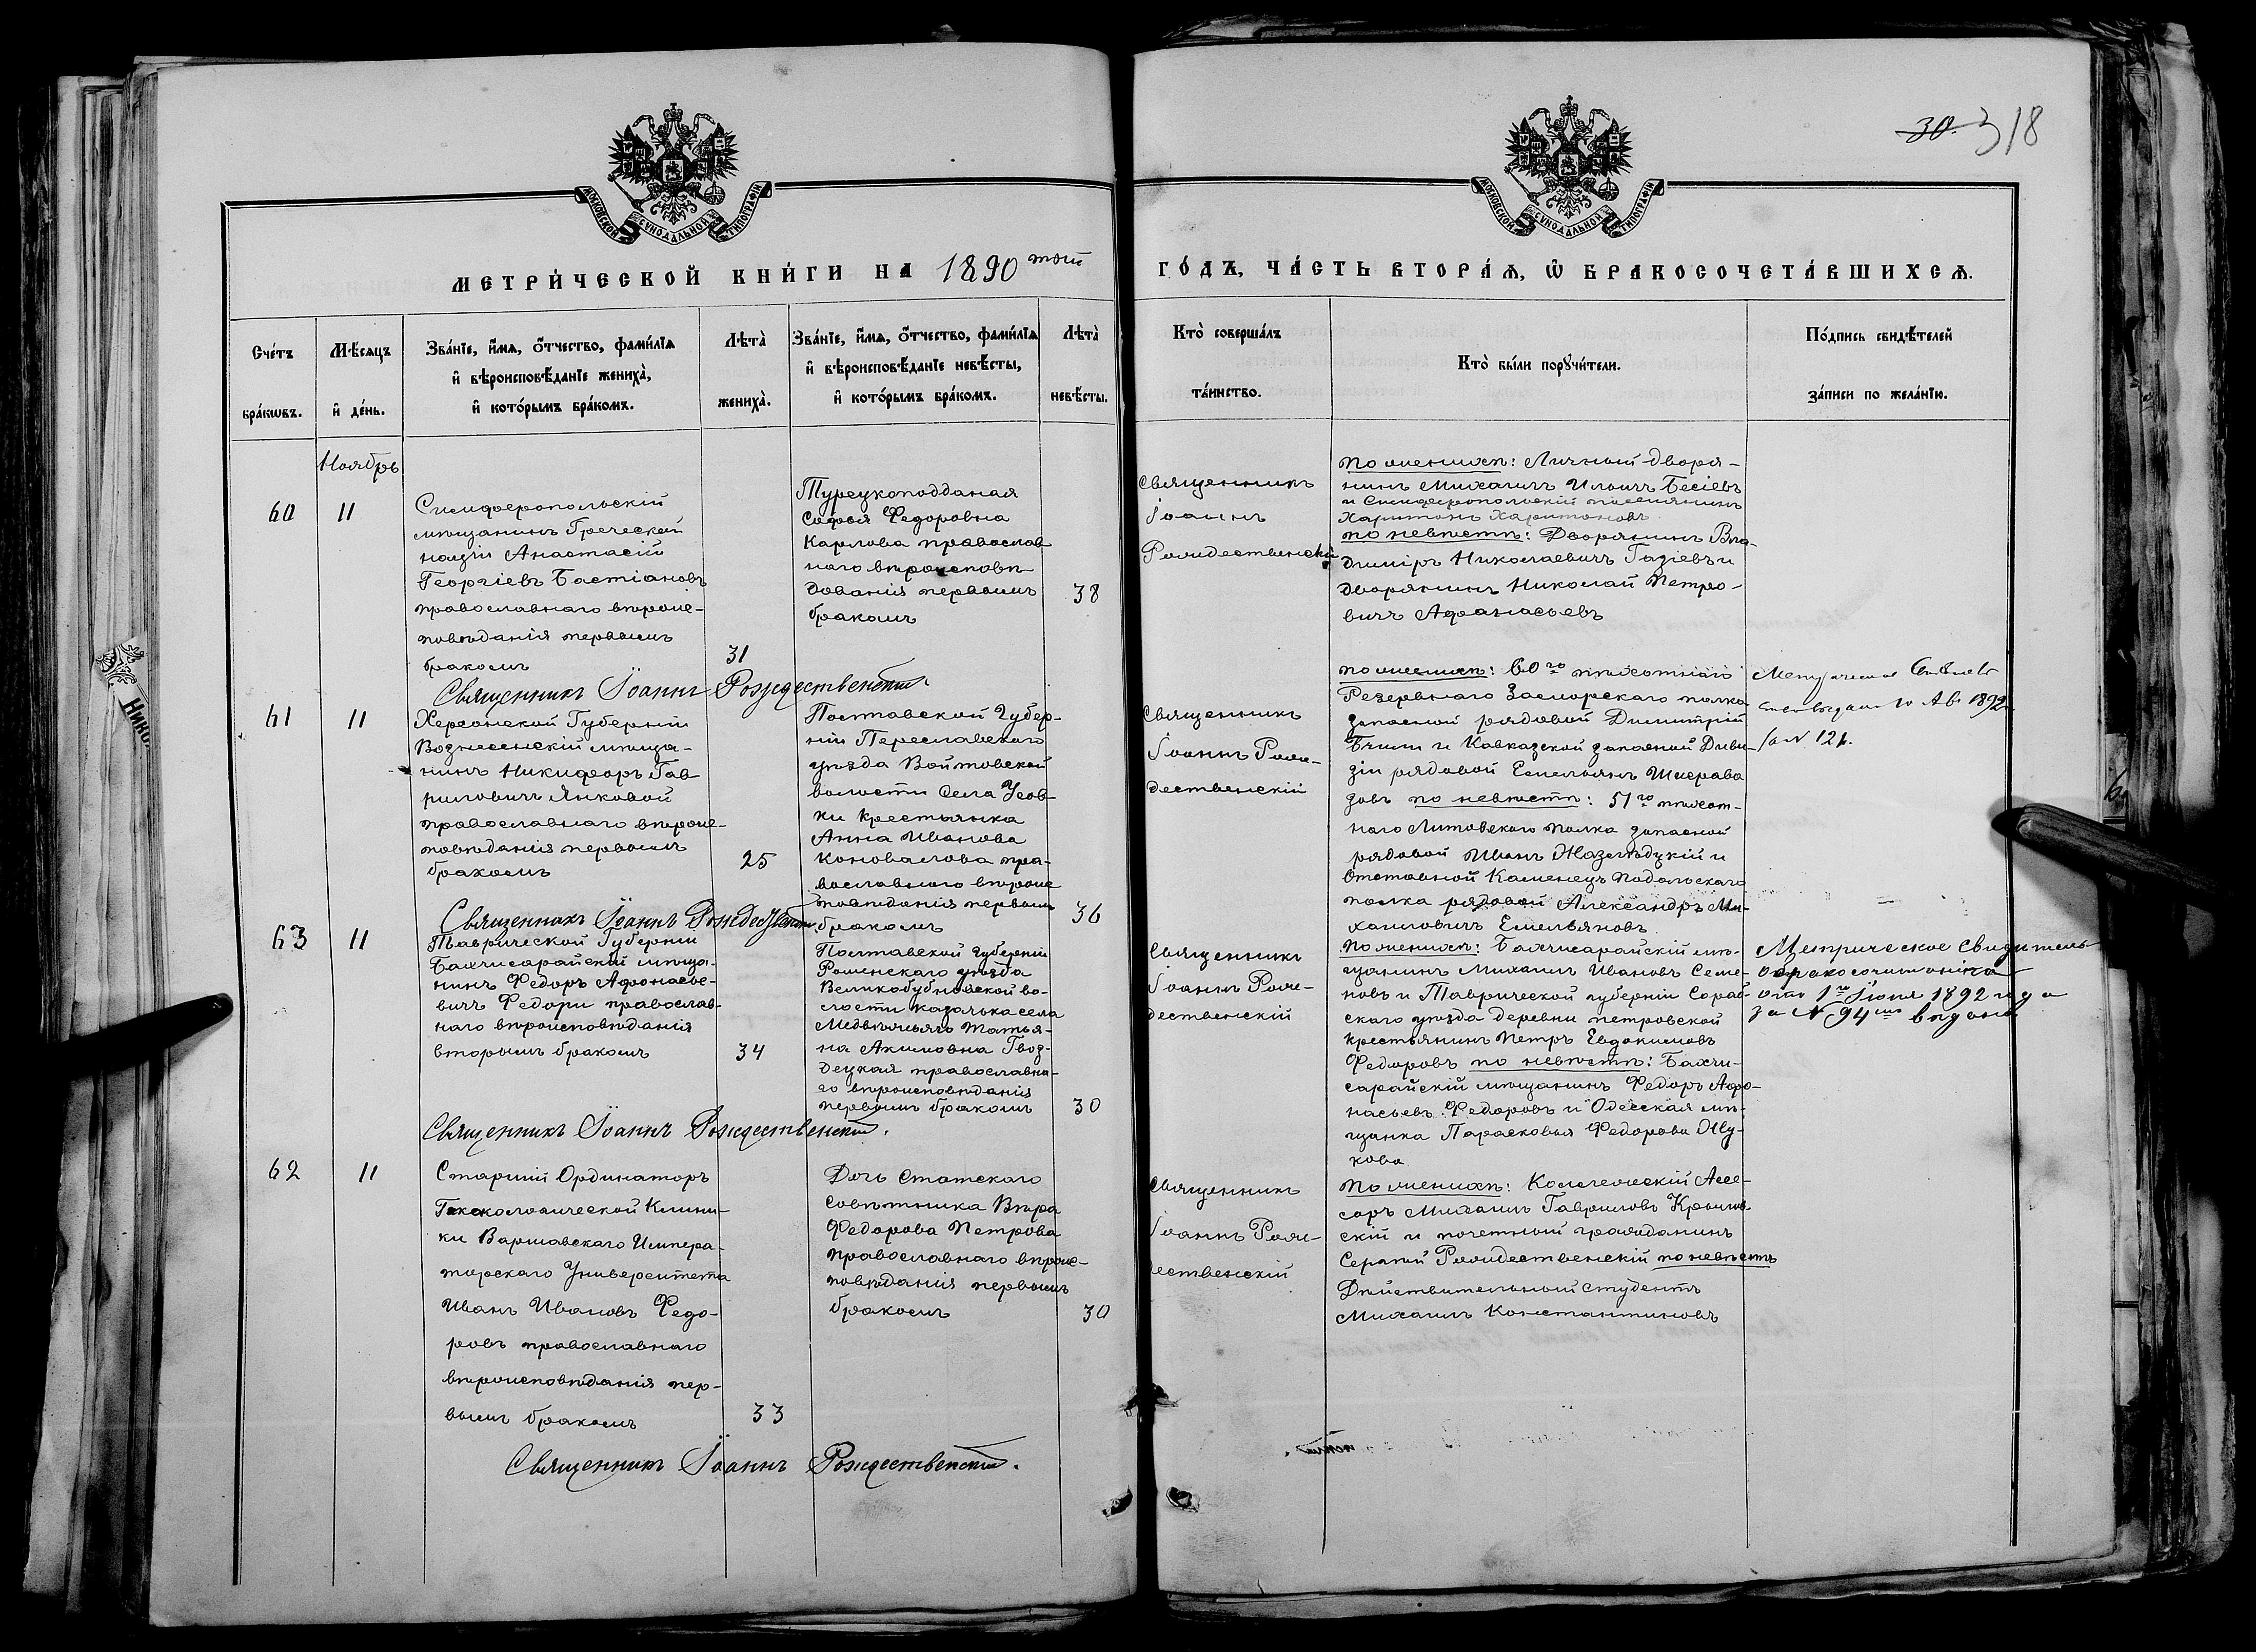 30. 318
МОСКОВСКОЙ СѴНОДАЛЬНОЙ ТИПОГРАФІИ
МОСКОВСКОЙ СѴНОДАЛЬНОЙ ТИПОГРАФІИ
МЕТРИ́ЧЕСКОЙ КНИ́ГИ НА 1890 той
ГО́ДЪ, ЧА́СТЬ ВТОРА́Я, Ѡ БРАКОСОЧЕТА́ВШИХСѦ.
Сче́тъ
бра́кѡвъ.
Мѣ́сяцъ
и҆ де́нь.
Зва́нїе, и҆́мѧ, ѻ҆́тчество, фами́лїѧ
и҆ вѣроисповѣ́данїе жениха̀,
и҆ кото́рымъ бра́комъ.
Лѣта̀
жениха̀.
Зва́нїе, и҆́мѧ, ѻ҆́тчество, фами́лїѧ
и҆ вѣроисповѣ́данїе невѣ́сты,
и҆ кото́рымъ бра́комъ.
Лѣта̀
невѣ́сты.
Кто̀ соверша́лъ
та́инство.
Кто̀ бы́ли порꙋчи́тели.
По́дпись свидѣ́телей
за́писи по жела́нїю.
Ноябрь
60
11
Симферопольскій
мѣщанинъ Греческой
націи Анастасій
Георгіевъ Бастіановъ
православнаго вѣроис-
повѣданія первымъ
бракомъ
31
Турецкоподданая
Софья Федоровна
Карлова православ
наго вѣроисповѣ
дованія первымъ
бракомъ
38
Священникъ
Іоаннъ
Рождественскій
по женихѣ: Личный дворя-
нинъ Михаилъ Ильичъ Бесіевъ
и Симферопольскій поселянинъ
Харитонъ Харитоновъ
по невѣстѣ: Дворянинъ Вла-
диміръ Николаевичъ Гадіевъ и
дворянинъ Николай Петро-
вичъ Афанасьевъ
Священникъ Іоаннъ Рождественскій
61
11
Херсонской Губерніи
Вознесенскій мѣща-
нинъ Никифоръ Гав-
риловичъ Янковой
православнаго вѣроис-
повѣданія первымъ
бракомъ
25
Полтавской Губер-
ніи Переславскаго
уѣзда Войтовской
волости Села Усов-
ки крестьянка
Анна Иванова
Коновалова пра-
вославнаго вѣроис
повѣданія первымъ
бракомъ
36
Священникъ
Іоаннъ Рож-
дественскій
по женихѣ: 60го пѣхотнаго
Резервнаго Замосцкаго полка
запасной рядовой Димитрій
и Кавказской запасной Диви-
зіи рядовой Емельянъ
довъ по невѣстѣ: 51го пѣхот-
наго Литовскаго полка запасной
рядовой Иванъ и
Отставной Каменецъ Подольскаго
полка рядовой Александръ Ми-
хаиловичъ Емельяновъ
выдано 10 Авг 1892
за № 121.
Священникъ Іоаннъ Рождественскій
63
11
Таврической Губерніи
Бахчисарайскій мѣща-
нинъ Федоръ Афонасье-
вичъ Федори православ-
наго вѣроисповѣданія
вторымъ бракомъ
34
Полтавской Губерніи
Роменскаго уѣзда
Великобубновской во-
лости казачька села
Медвѣжьяго Татья-
на Акимовна Гвоз-
децкая православна-
го вѣроисповѣданія
первымъ бракомъ
30
Священникъ
Іоаннъ Рож-
дественскій
По женихѣ: Бахчисарайскій мѣ-
щанинъ Михаилъ Ивановъ Семе-
новъ и Таврической губерніи
скаго уѣзда деревни петровской
крестьянинъ Петръ Евдокимовъ
Федоровъ по невѣстѣ: Бахчи-
сарайскій мѣщанинъ Федоръ Афо-
насьевъ Федоровъ и Одесская мѣ-
щанка Парасковья Федорова Жу-
кова
Метрическое свидѣтель
о бракосочитаніи
отъ 1го Іюня 1892 года
за № 94мъ выдано
Священникъ Іоаннъ Рождественскій.
62
11
Старшій Ординаторъ
Гинекологической Клини-
ки Варшавскаго Импера-
торскаго Университета
Иванъ Ивановъ Федо-
ровъ православнаго
вѣроисповѣданія пер-
вымъ бракомъ
33
Дочь статскаго
совѣтника Вѣра
Федорова Петрова
православнаго вѣроис-
повѣданія первымъ
бракомъ
30
Священникъ
Іоаннъ Рож-
дественскій
По женихѣ: Коллежскій Ассе-
соръ Михаилъ Гавриловъ Крыжов-
скій и почетный гражданинъ
Сергѣй Рождественскій по невѣстѣ
Дѣйствительный студентъ
Михаилъ Константиновъ
Священникъ Іоаннъ Рождественскій.